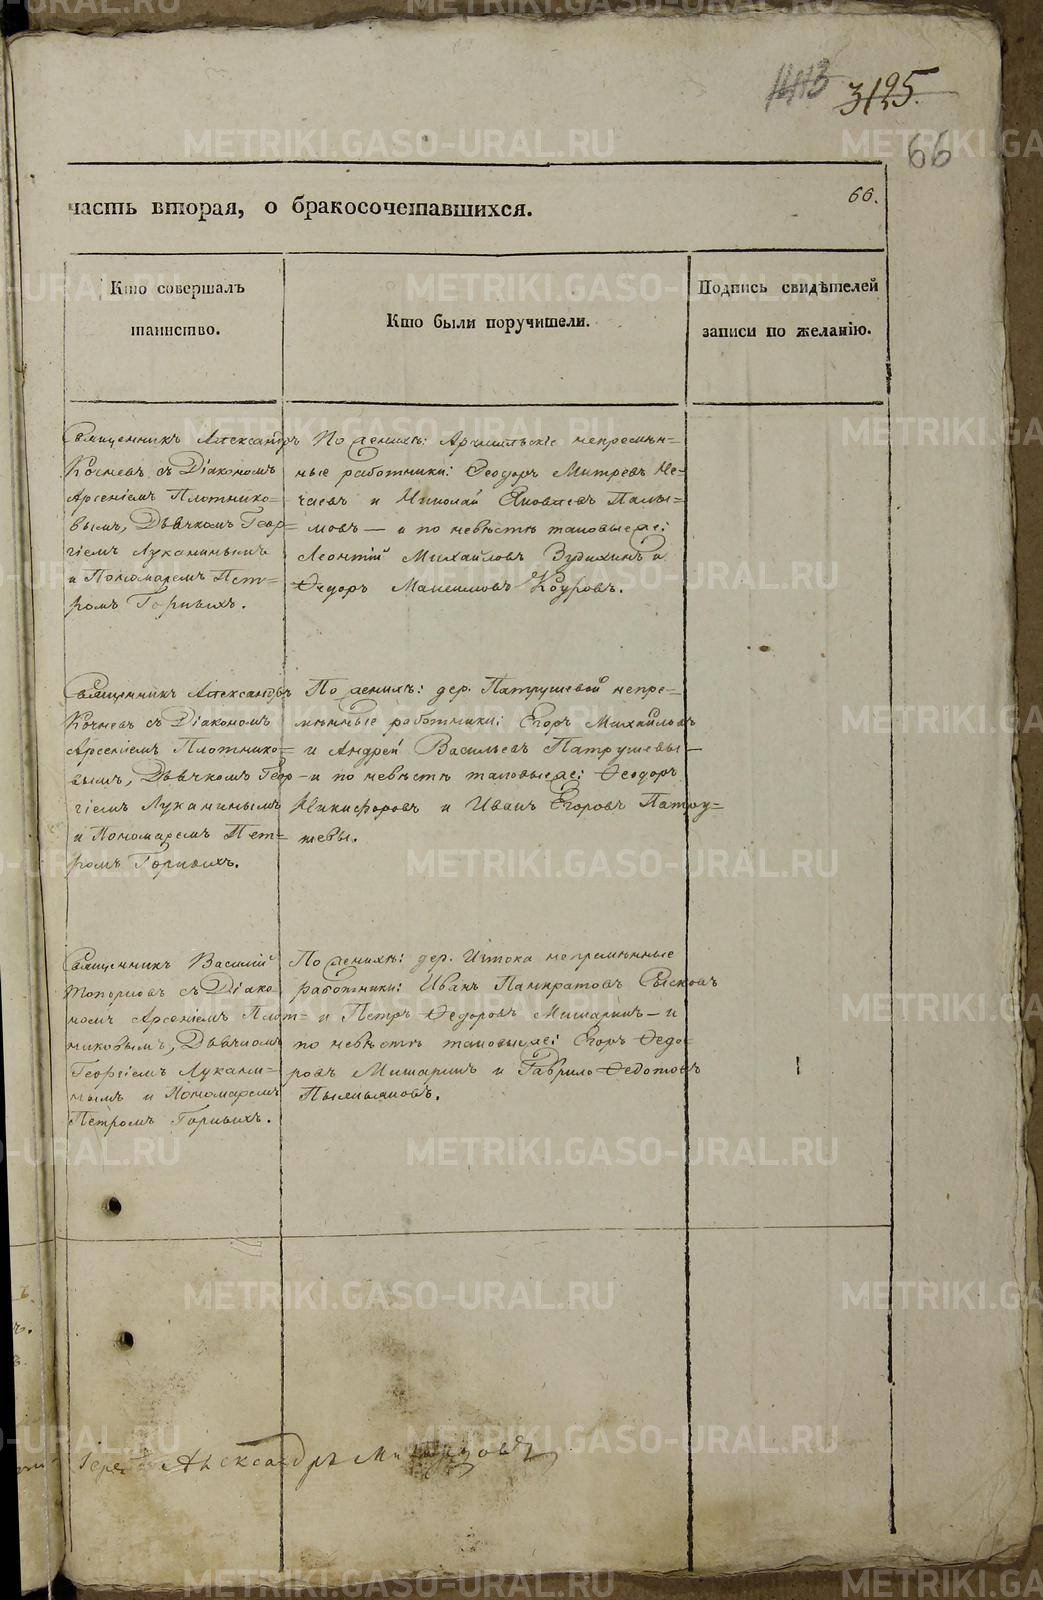 3195.
66
66.
часть вторая, о бракосочетавшихся.
Кто совершалъ
таинство.
Кто были поручители.
Подпись свидѣтелей
записи по желанію.
Священникъ Александръ
Кочневъ съ Діакономъ
Арсеніемъ Плотнико-
вымъ, Дьячкомъ Геор-
гіемъ Луканинымъ
и Пономаремъ Пет-
ромъ Горныхъ.
По женихѣ: Арамильскіе непремѣн-
ные работники: Ѳеодоръ Митревъ Не-
чаевъ и Николай Яковлевъ Палы-
мовъ — и по невѣстѣ таковые же:
Леонтій Михайловъ Зудихинъ и
Ѳедоръ Максимовъ Коуровъ.
Священникъ Александръ
Кочневъ съ Діакономъ
Арсеніемъ Плотнико-
вымъ, Дьячкомъ Геор-
гіемъ Луканинымъ
и Пономаремъ Пет-
ромъ Горныхъ.
По женихѣ: дер. Патрушевой непре-
мѣнные работники: Егоръ Михайловъ
и Андрей Васильевъ Патрушевы —
и по невѣстѣ таковые же: Ѳеодоръ
Никифоровъ и Иванъ Егоровъ Патру-
шевы.
Священникъ Василій
Топорковъ съ Діако-
номъ Арсеніемъ Плот-
никовымъ, Дьячкомъ
Георгіемъ Лукани-
нымъ и Пономаремъ
Петромъ Горныхъ.
По женихѣ: дер. Истока непремѣнные
работники: Иванъ Панкратовъ Сысковъ
и Петръ Ѳедоровъ Мишаринъ — и
по невѣстѣ таковые же: Егоръ Ѳедо-
ровъ Мишаринъ и Гаврило Ѳедотовъ
Пьянковъ.
Іерей Александръ
METRIKI.GASO-URAL.RU